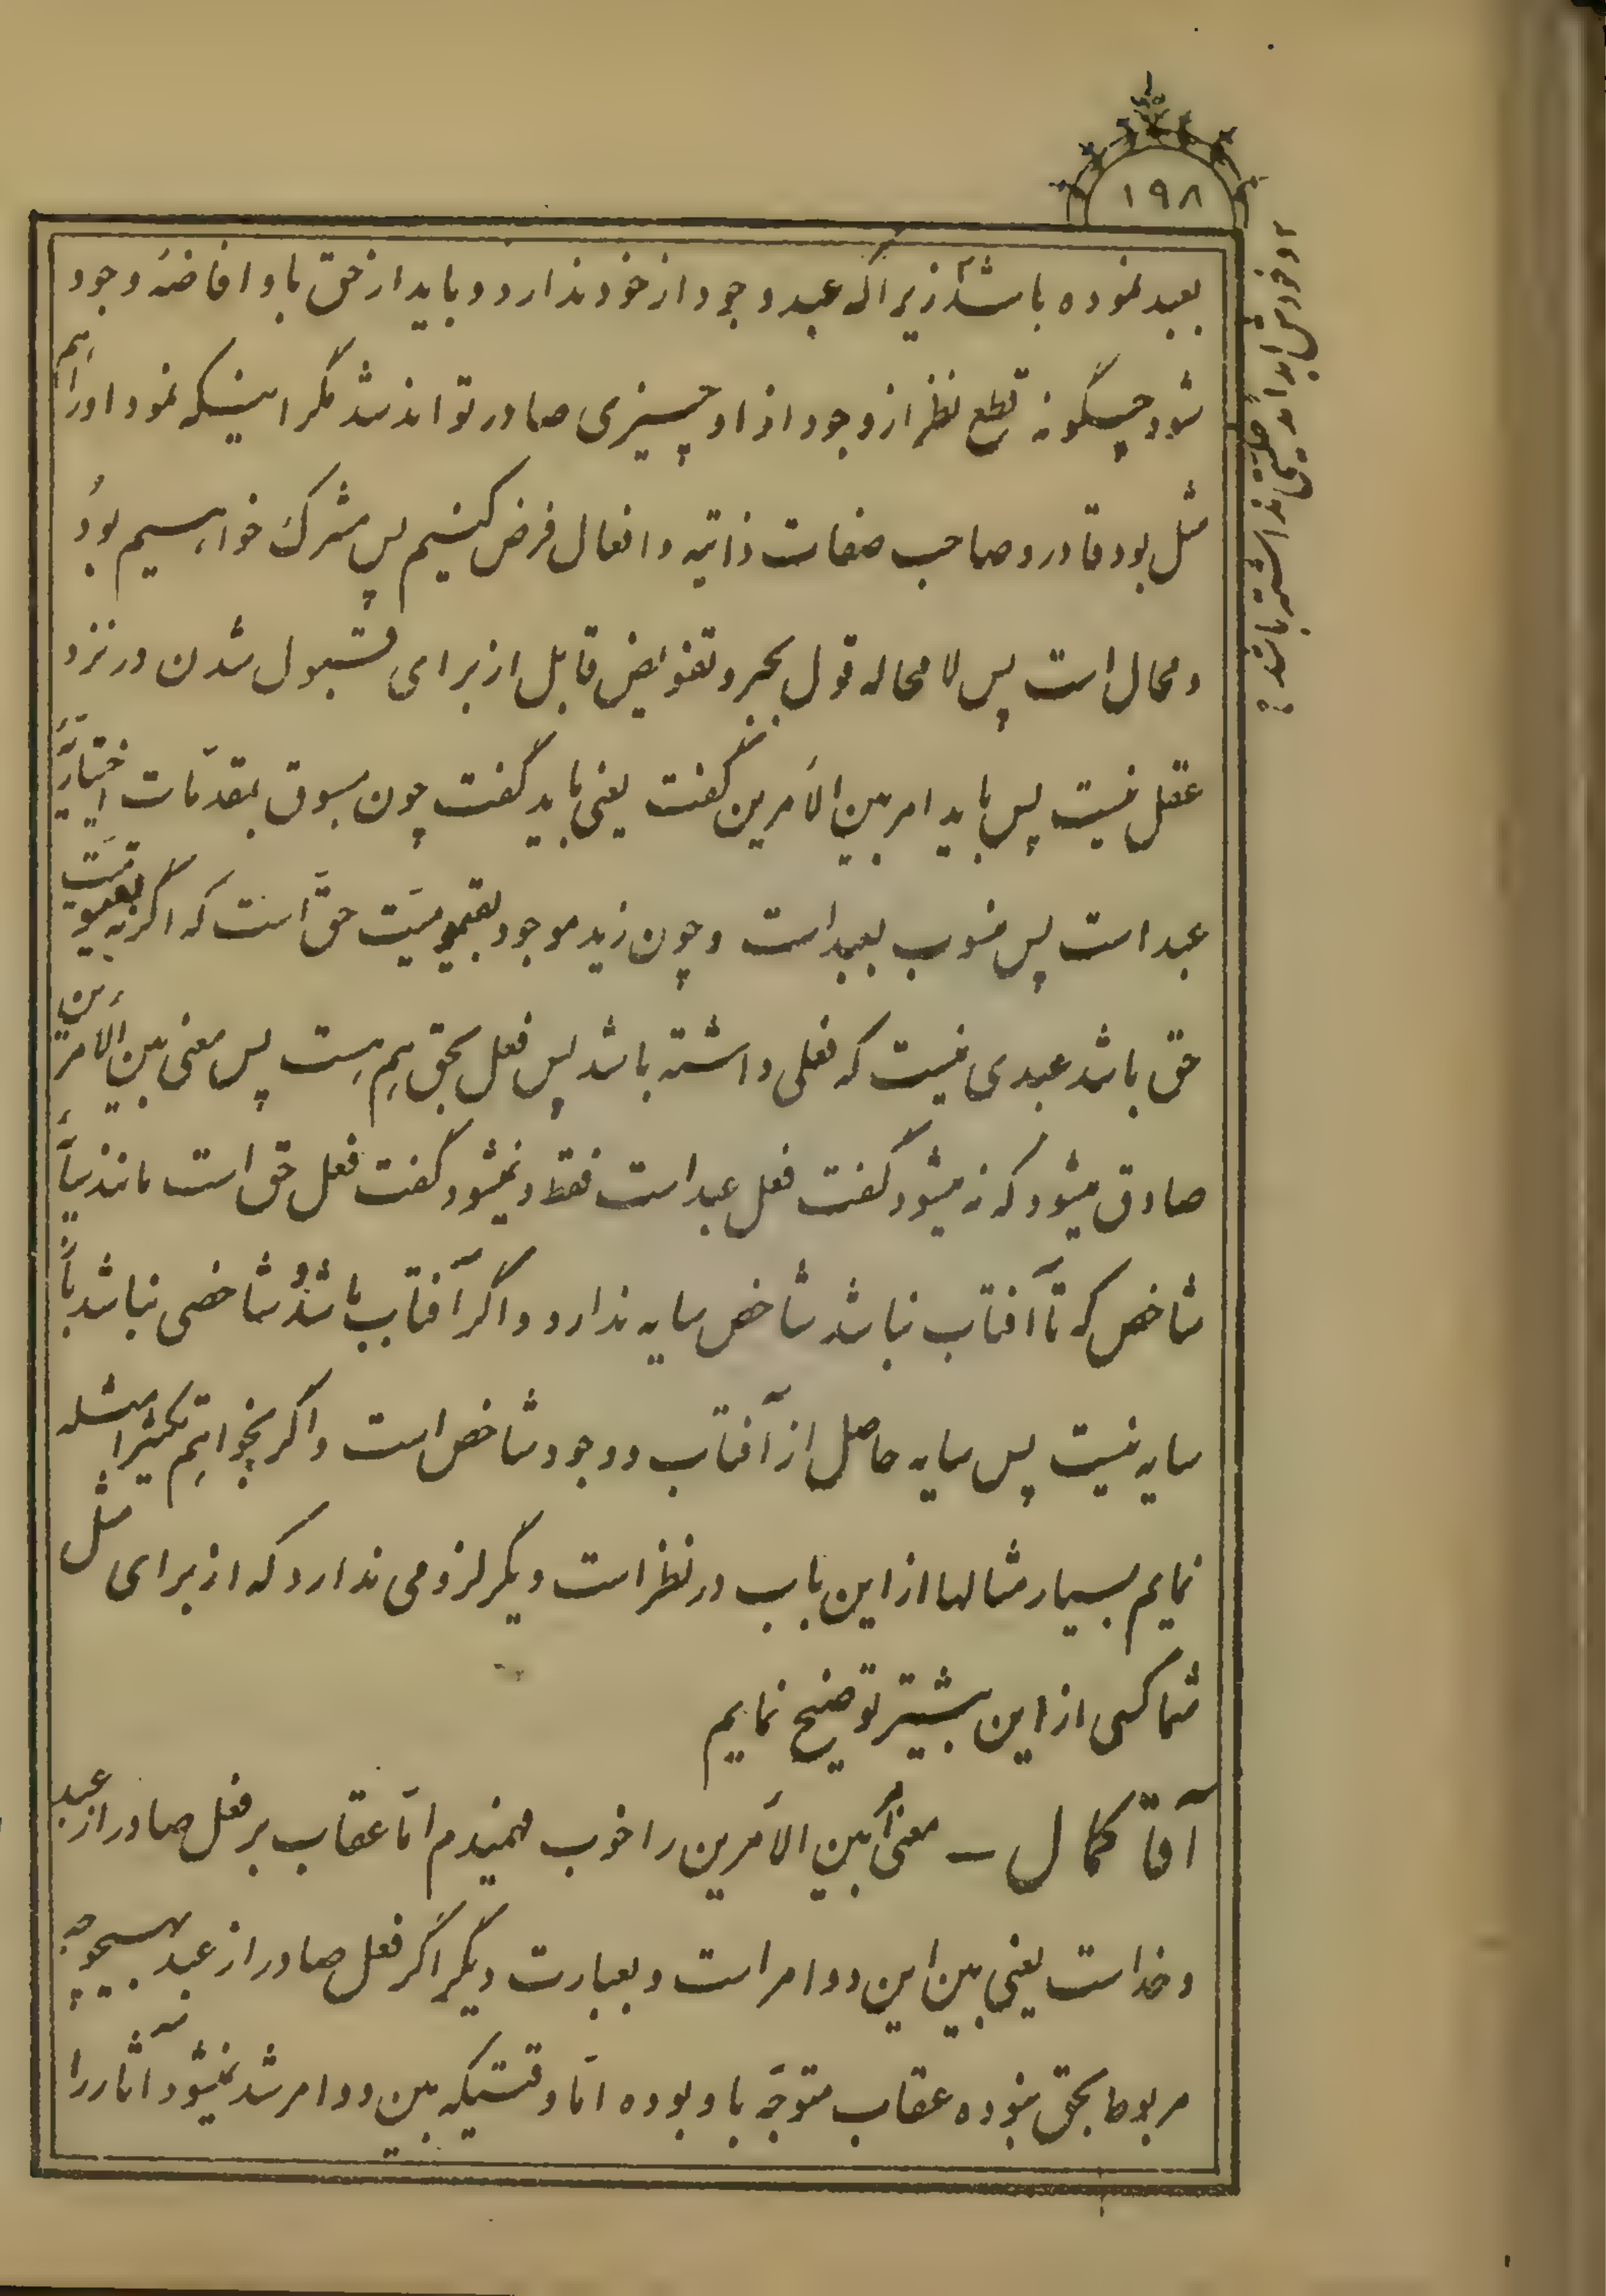 ۱۹۸
بعبد نموده باشد زیرا که عبد وجود از خود ندارد و باید از حق باو افاضهٔ وجود
شود چگونه قطع نظر از وجود از او چیزی صادر تواند شد مگر اینکه نمود او را هم
مثل بود قادر و صاحب صفات ذاتیه و افعال فرض کنیم پس مشرک خواهیم بود
و محال است پس لا محاله قول بجبر و تفویض قابل از برای قبول شدن در نزد
عقل نیست پس باید امر بین الامرین گفت یعنی باید گفت چون مسبوق بمقدمات اختیاریه
عبد است پس منسوب بعبد است و چون زید موجود بقیومیت حق است که اگر نه بقیومیت
حق باشد عبدی نیست که فعلی داشته باشد پس فعل بحق هم هست پس معنی بین الامرین
صادق میشود که نه میشود گفت فعل عبد است فقط و نمیشود گفت فعل حق است مانند سایه
شاخص که تا آفتاب نباشد شاخص سایه ندارد و اگر آفتاب باشد و شاخصی نباشد باز
سایه نیست پس سایه حاصل از آفتاب و وجود شاخص است و اگر بخواهیم تکثیر امثله
نمایم بسیار مثالها از این باب در نظر است دیگر لزومی ندارد که از برای مثل
شما کسی از این بیشتر توضیح نمایم
آقا کمال — معنی امر بین الامرین را خوب فهمیدم اما عقاب بر فعل صادر از عبد
و خداست یعنی بین این دو امر است و بعبارت دیگر اگر فعل صادر از عبد بهیچوجه
مربوط بحق نبوده عقاب متوجّه باو بوده امّا وقتیکه بین دو امر شد نمیشود آثار را
و خودش ابدا مدخلیتی نداشته باشد